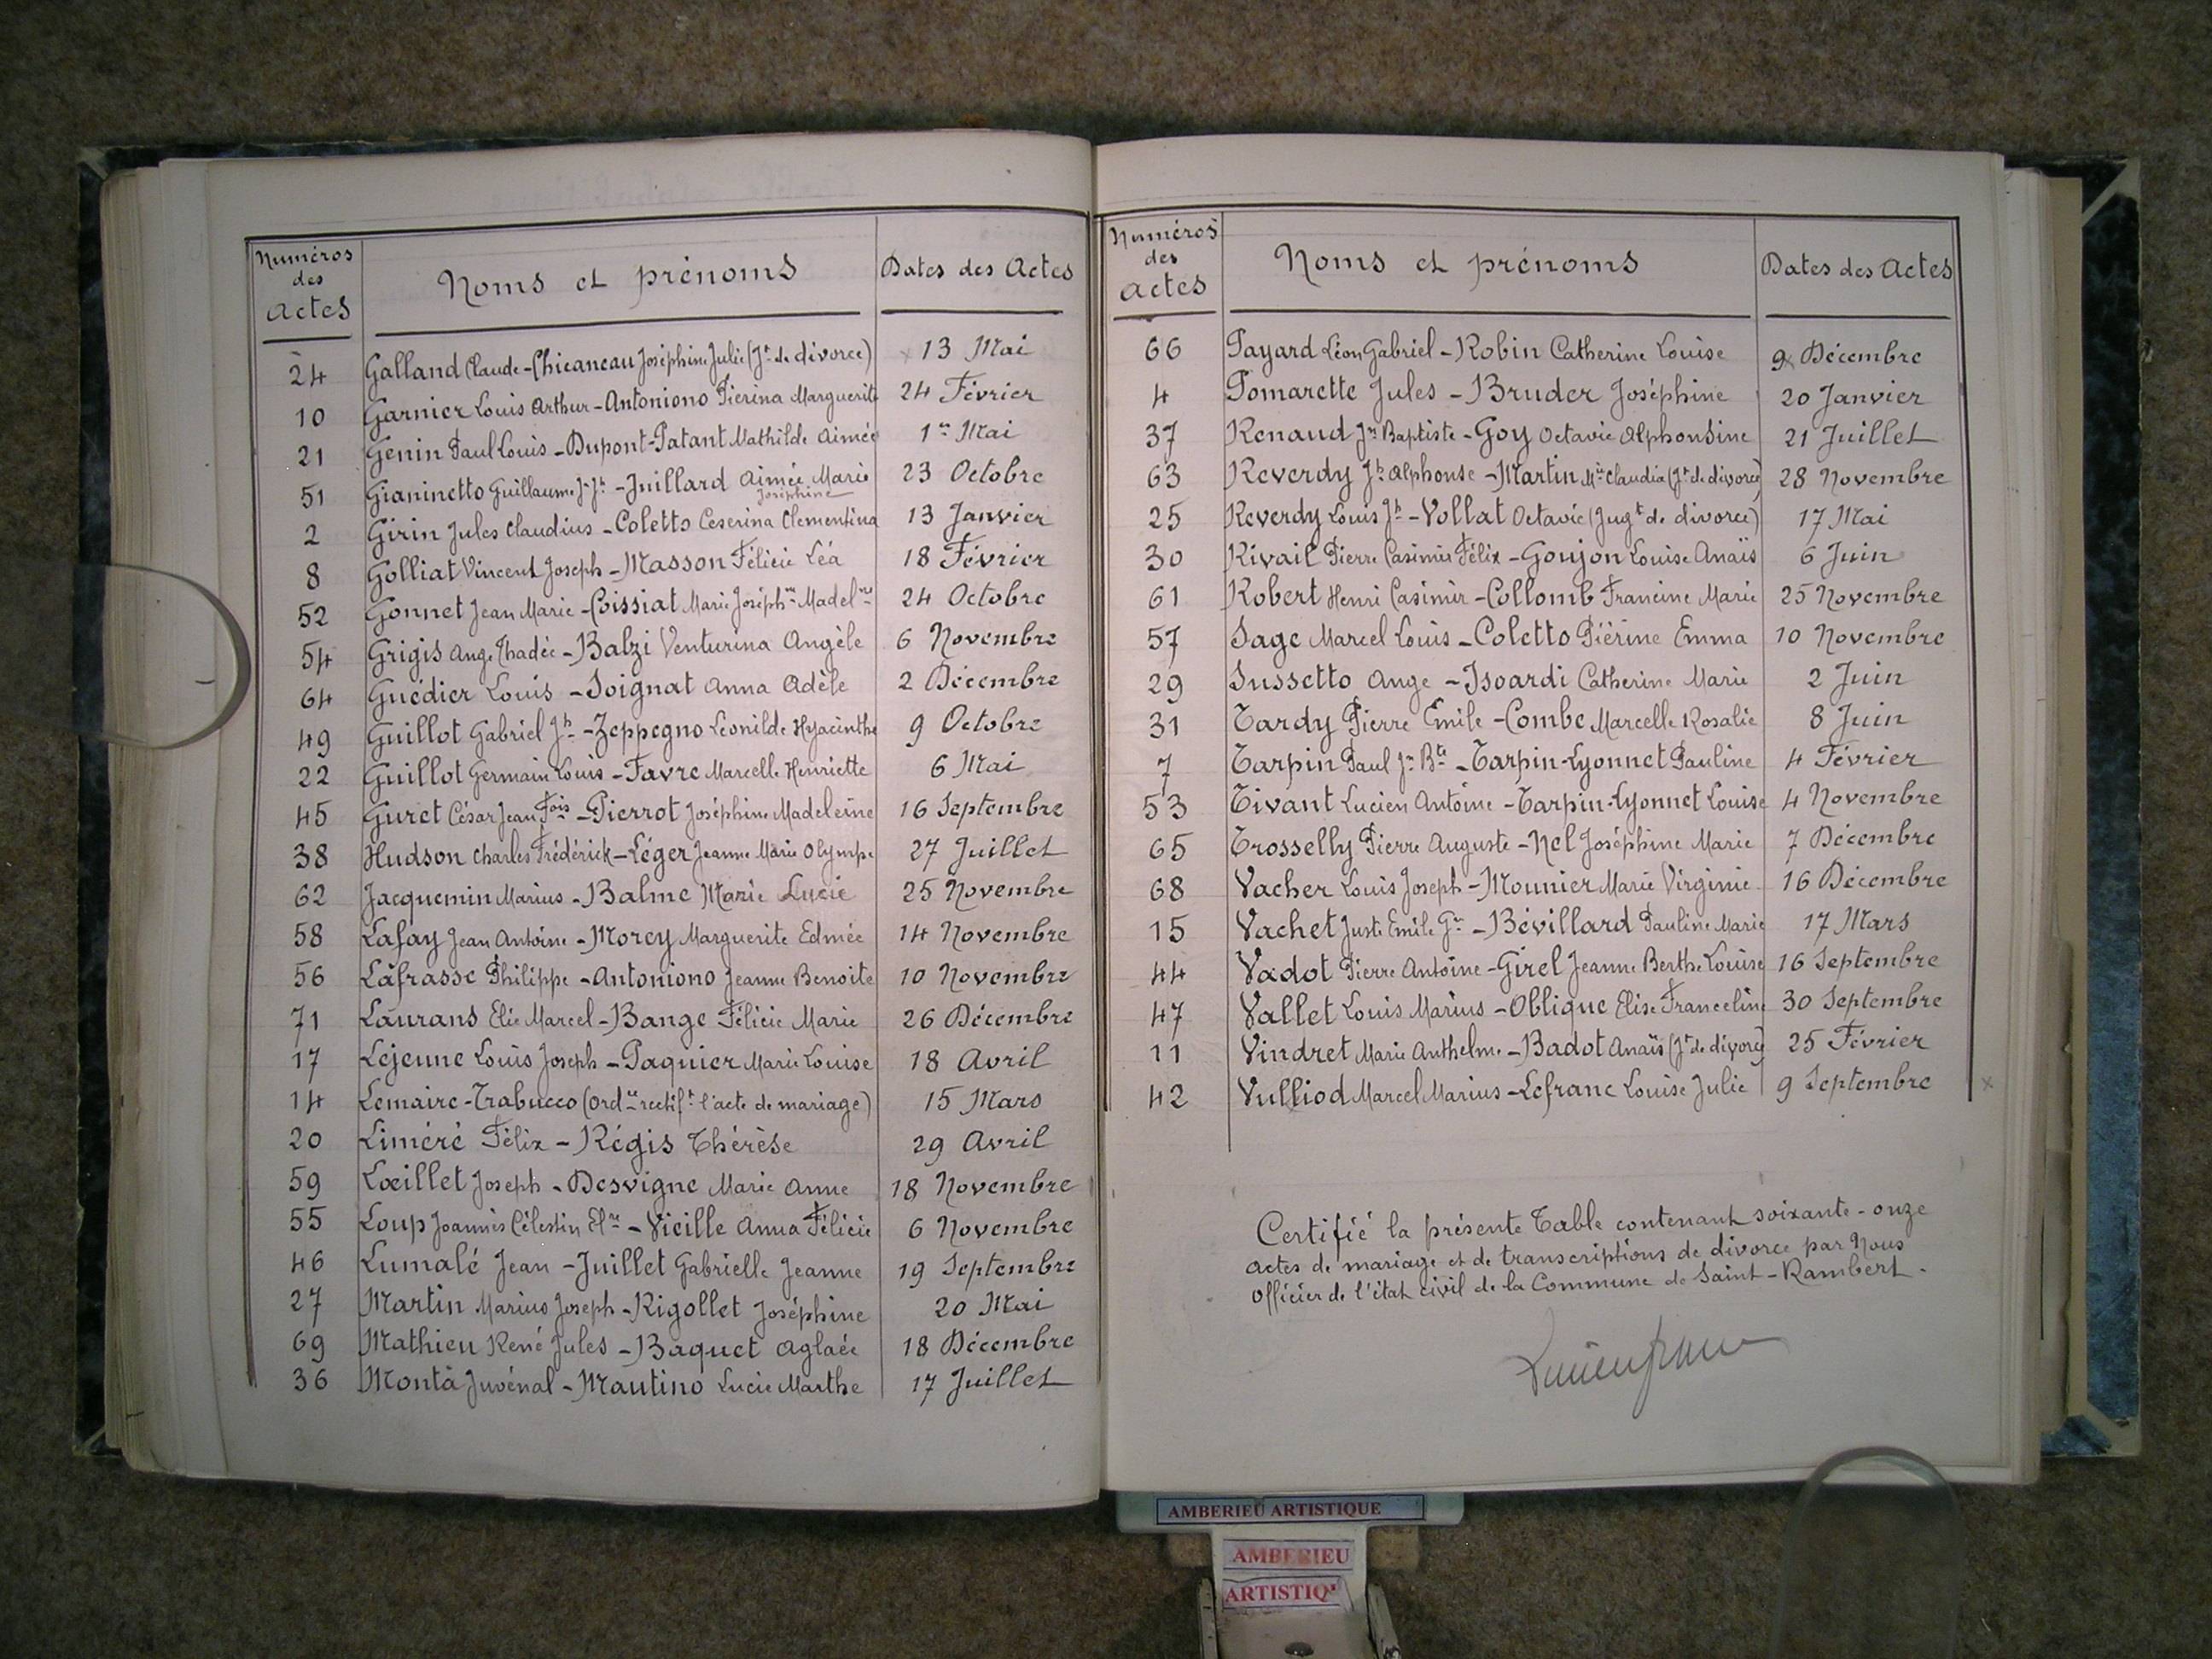 Numéros des Actes Noms et prénoms Dates des Actes
24 Galland Claude - Chicaneau Joséphine Julie (Jt de divorce) 13 Mai
10 Garnier Louis Arthur - Antoniono Pierina Marguerite 24 Février
21 Genin Paul Louis - Dupont-Patant Mathilde Aimée 1er Mai
51 Gianinetto Guillaume Jn Jh - Juillard Aimée Marie Joséphine 23 Octobre
2 Girin Jules Claudius - Coletto Ceserina Clementina 13 Janvier
8 Golliat Vincent Joseph - Masson Félicie Léa 18 Février
52 Gonnet Jean Marie - Coissiat Marie Joséphne Madelne 24 Octobre
54 Grigis Ange Thadée - Balzi Venturina Angèle 6 Novembre
64 Guédier Louis - Soignat Anna Adèle 2 Décembre
49 Guillot Gabriel Jh - Zeppegno Léonilde Hyacinthe 9 Octobre
22 Guillot Germain Louis - Favre Marcelle Henriette 6 Mai
45 Guret César Jean Fois - Pierrot Joséphine Madeleine 16 Septembre
38 Hudson Charles Frédérick - Léger Jeanne Marie Olympe 27 Juillet
62 Jacquemin Marius - Balme Marie Lucie 25 Novembre
58 Lafay Jean Antoine - Morey Marguerite Edmée 14 Novembre
56 Lafrasse Philippe - Antoniono Jeanne Benoite 10 Novembre
71 Laurans Elie Marcel - Bange Félicie Marie 26 Décembre
17 Lejeune Louis Joseph - Paquier Marie Louise 18 Avril
14 Lemaire-Trabucco (Ordce rectift l'acte de mariage) 15 Mars
20 Liméré Félix - Régis Thérèse 29 Avril
59 Lœillet Joseph - Desvigne Marie Anne 18 Novembre
55 Loup Joannès Célestin Elne - Vieille Anna Félicie 6 Novembre
46 Lumalé Jean - Juillet Gabrielle Jeanne 19 Septembre
27 Martin Marius Joseph - Rigollet Joséphine 20 Mai
69 Mathieu René Jules - Baquet Aglaée 18 Décembre
36 Monta Juvénal - Mautino Lucie Marthe 17 Juillet
Numéros des Actes Noms et prénoms Dates des Actes
66 Payard Léon Gabriel - Robin Catherine Louise 9 Décembre
4 Pomarette Jules - Bruder Joséphine 20 Janvier
37 Renaud Jn Baptiste - Goy Octavie Alphonsine 21 Juillet
63 Reverdy Jh Alphonse - Martin Mie Claudia (Jt de divorce) 28 Novembre
25 Reverdy Louis Jh - Vollat Octavie (Jugt de divorce) 17 Mai
30 Rivail Pierre Casimir Félix - Goujon Louise Anaïs 6 Juin
61 Robert Henri Casimir - Collomb Francine Marie 25 Novembre
57 Sage Marcel Louis - Coletto Piérine Emma 10 Novembre
29 Sussetto Ange - Isoardi Catherine Marie 2 Juin
31 Tardy Pierre Emile - Combe Marcelle Rosalie 8 Juin
7 Tarpin Paul Jn Bte - Tarpin-Lyonnet Pauline 4 Février
53 Tivant Lucien Antoine - Tarpin-Lyonnet Louise 4 Novembre
65 Trosselly Pierre Auguste - Nel Joséphine Marie 7 Décembre
68 Vacher Louis Joseph - Mounier Marie Virginie 16 Décembre
15 Vachet Juste Emile - Bévillard Pauline Marie 17 Mars
44 Vadot Pierre Antoine - Girel Jeanne Berthe Louise 16 Septembre
47 Vallet Louis Marius - Oblique Elise Franceline 30 Septembre
11 Vindret Marie Anthelme - Badot Anaïs (Jt de divorce) 25 Février
42 Vulliod Marcel Marius - Lefranc Louise Julie 9 Septembre
Certifié la présente Table contenant soixante-onze
actes de mariage et de transcriptions de divorce par Nous
Officier de l'état civil de la Commune de Saint-Rambert.
AMBERIEU ARTISTIQUE
AMBERIEU
ARTISTIQ